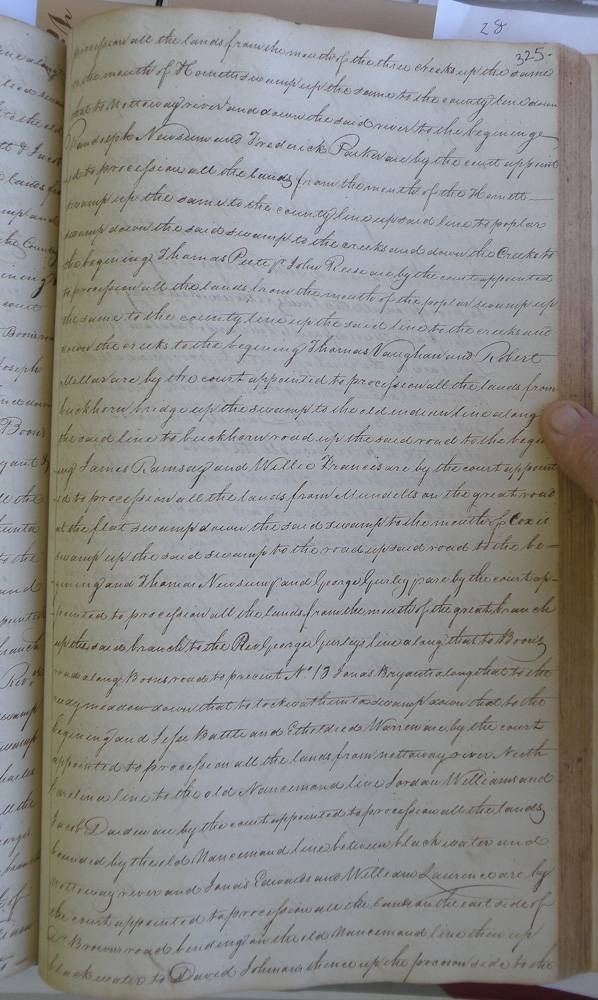 28
325.
procession all the lands from the mouth of the three creeks up the same
to the mouth of Hornetts swamp up the same to the county line down
that to Nottoway river and down the said river to the begining
Randolph Newsum and Frederick Parker are by the court appoint
ed to procession all the lands from the mouth of the Hornett
swamp up the same to the county line up said line to poplar
swamp down the said swamp to the creeks and down the Creeks to
the begining Thomas Peete & John Reese are by the court appointed
to procession all the lands from the mouth of the poplar swamp up
the same to the county line up the said line to the creeks and
down the creeks to the begining Thomas Vaughan and Robert
Millar are by the court appointed to procession all the lands from
buckhorn bridge up the swamp to the old indian line along
the said line to buckhorn road up the said road to the begin
ing James Ramsay and Willie Francis are by the court appoint
ed to procession all the lands from Mundells on the great road
at the flat swamp down the said swamp to the mouth of Coxes
swamp up the said swamp to the road up said road to the be=
gining and Thomas Newsum and George Gurley are by the court ap=
pointed to procession all the lands from the mouth of the great branch
up the said branch to the Rev George Gurleys line along that to Boons
road along Boons road to precinct No 13 Jonas Bryants along that to the
meadow down that to swamp down that to the
begining and Jesse Battle and Etheldred Warren are by the court
appointed to procession all the lands from nottoway river North
Carolina line to the old Nancemond line Jordan Williams and
Jacob Darden are by the court appointed to procession all the lands
bounded by the old Nancemond line between black water and
nottoway river and Jonas Edwards and William Laurence are by
the court appointed to procession all the lands on the east side of
Dr Browns road bending on the old Nancemond line then up
black water to David Johnsons thence up the pocoson side to the